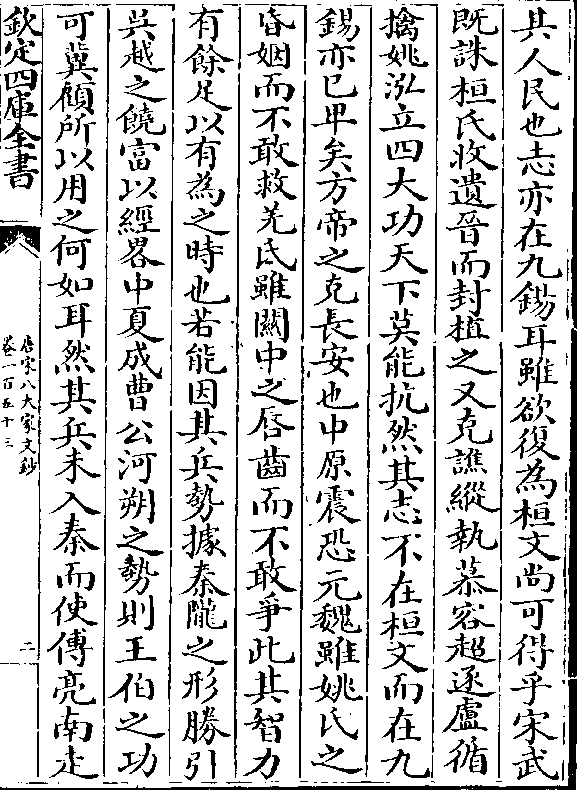 其人民也志亦在九錫耳雖欲復為桓文尚可得乎宋武
既誅桓氏收遺晉而封植之又克譙縱執慕容超逐盧循
擒姚泓立四大功天下莫能抗然其志不在桓文而在九
錫亦已卑矣方帝之克長安也中原震恐元魏雖姚氏之
昏姻而不敢救羌氐雖關中之唇齒而不敢爭此其智力
有餘足以有為之時也若能因其兵勢據秦隴之形勝引
吳越之饒富以經畧中夏成曹公河朔之勢則王伯之功
可冀顧所以用之何如耳然其兵未入秦而使傅亮南走
欽定四庫全書
唐宋八大家文鈔
卷一百五十三
二